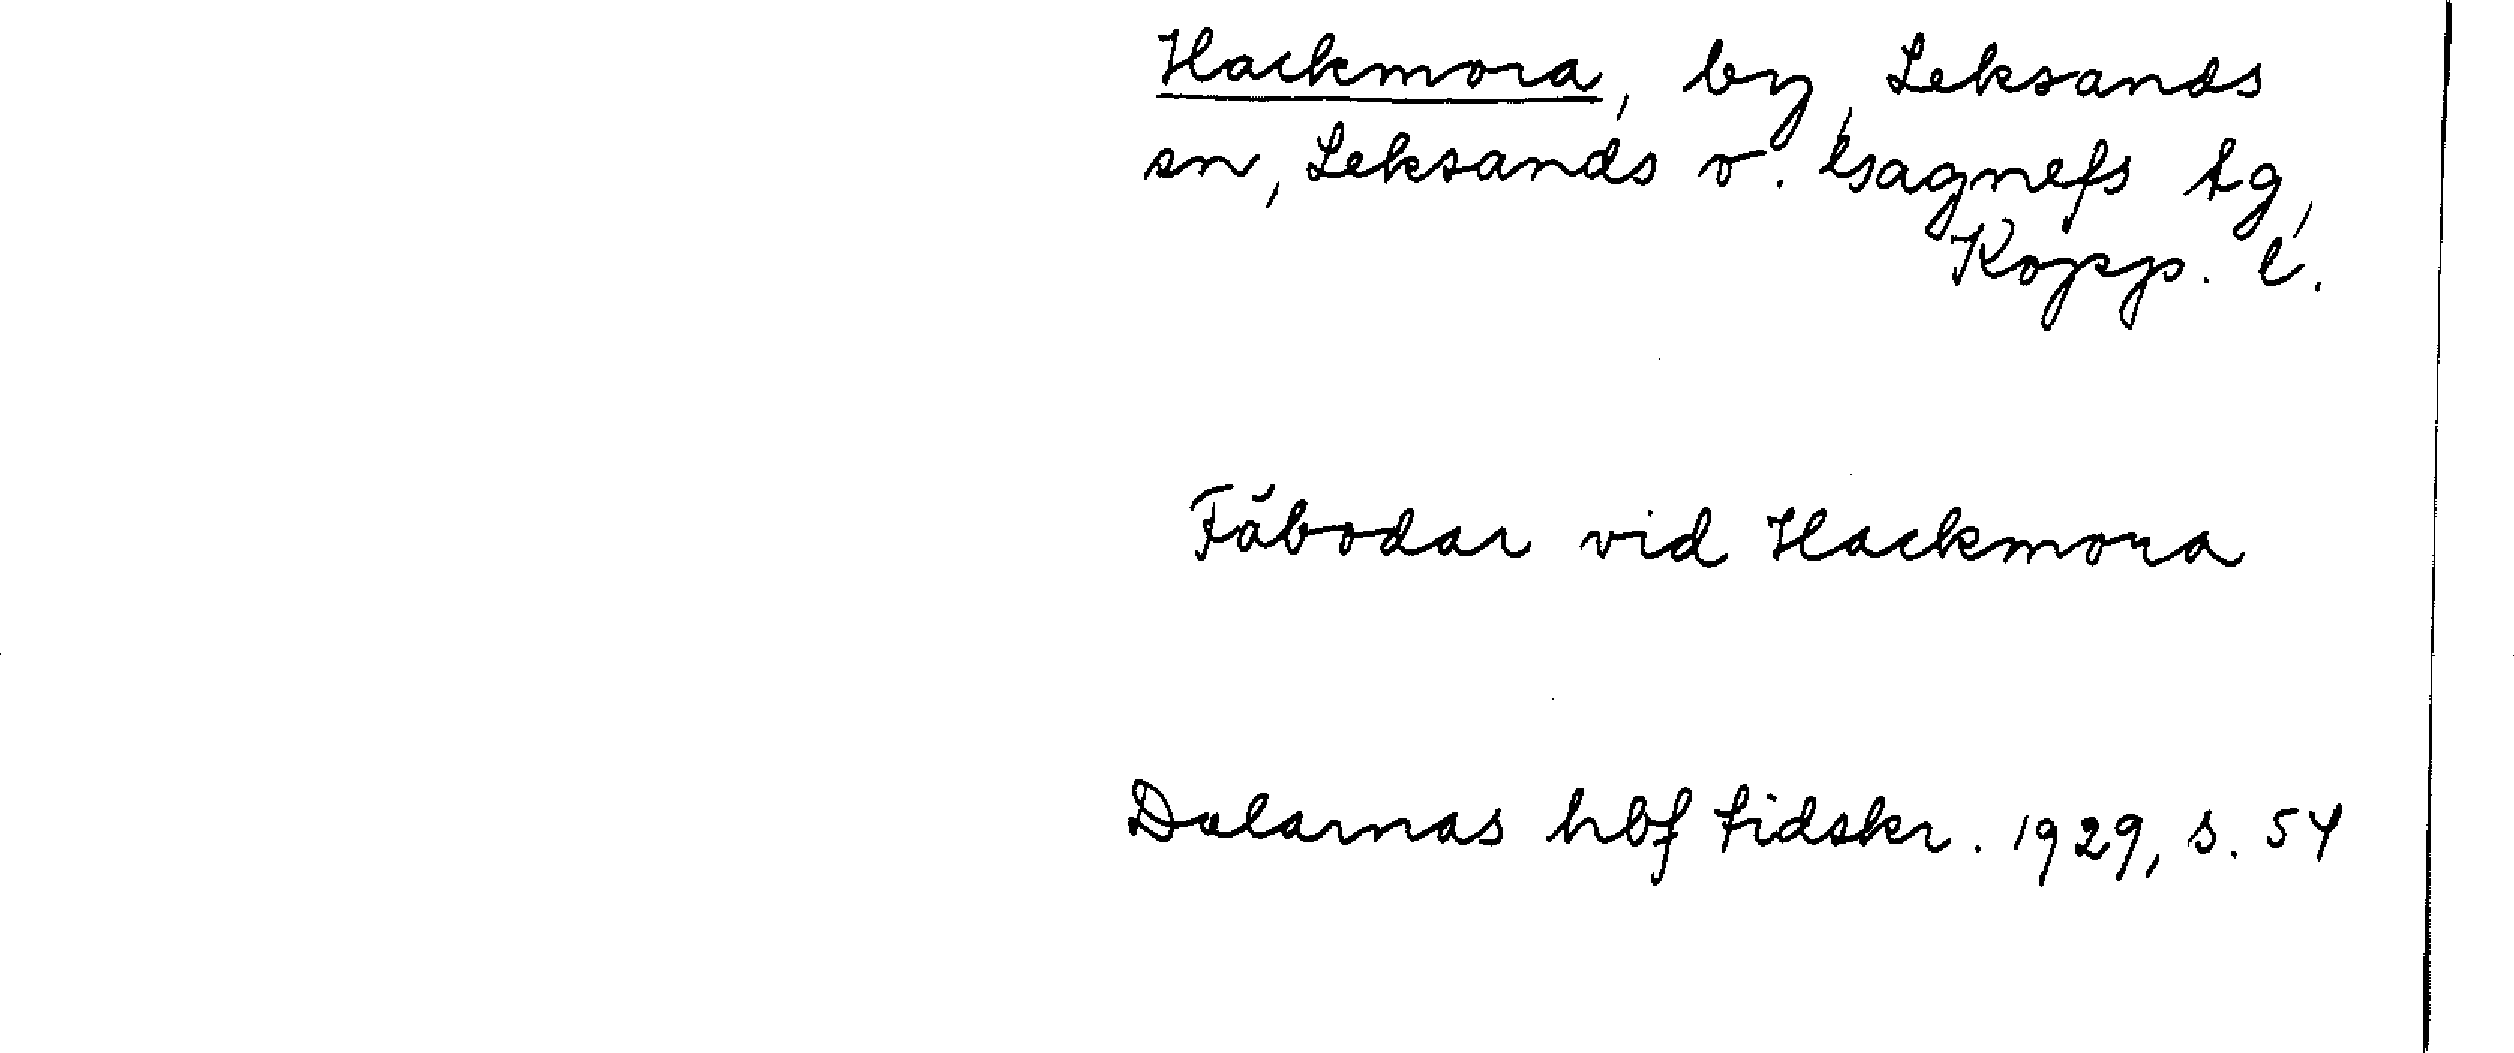 Hackmora, by, Leksands
sn, Leksands o. Gagnefs tg,
Kopp. l.
Fäbodar vid Hackmora
Dalarnas hbf tidskr. 1929, s. 54